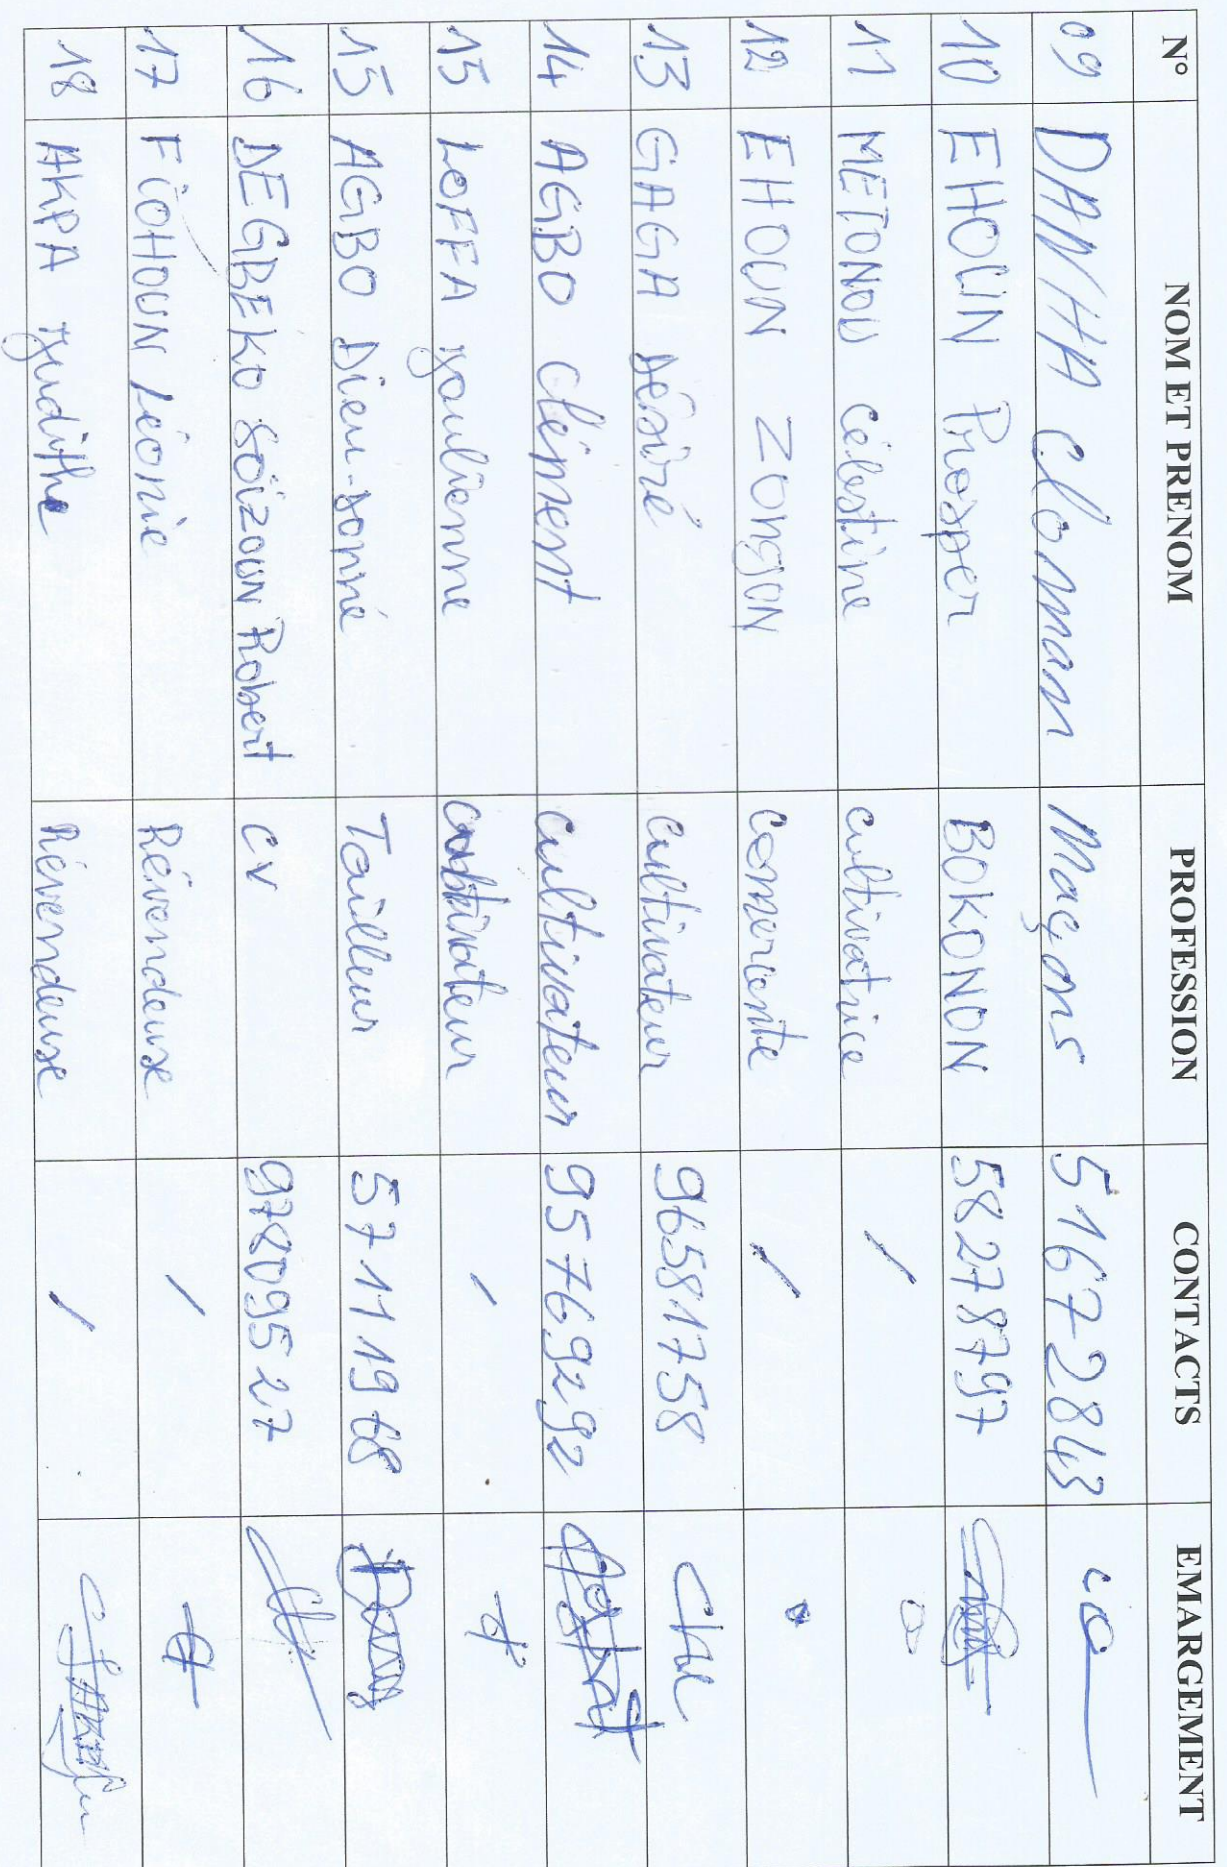 N° NOM ET PRENOM PROFESSION CONTACTS EMARGEMENT
09 DANHA Cloman Maçons 51672843
10 EHOUN Prosper BOKONON 58278797
11 METONOU Célestine cultivatrice /
12 EHOUN ZONGON Comercante /
13 GAGA Désiré cultivateur 96581758
14 AGBO Clément cultivateur 95769292
15 LOFFA youlienne cultivateur /
15 AGBO Dieu-donné Tailleur 57111968
16 DEGBEKO Soïzoun Robert CV 97809527
17 FIOHOUN Léonie Révendeuse /
18 AKPA yudithe Révendeuse /